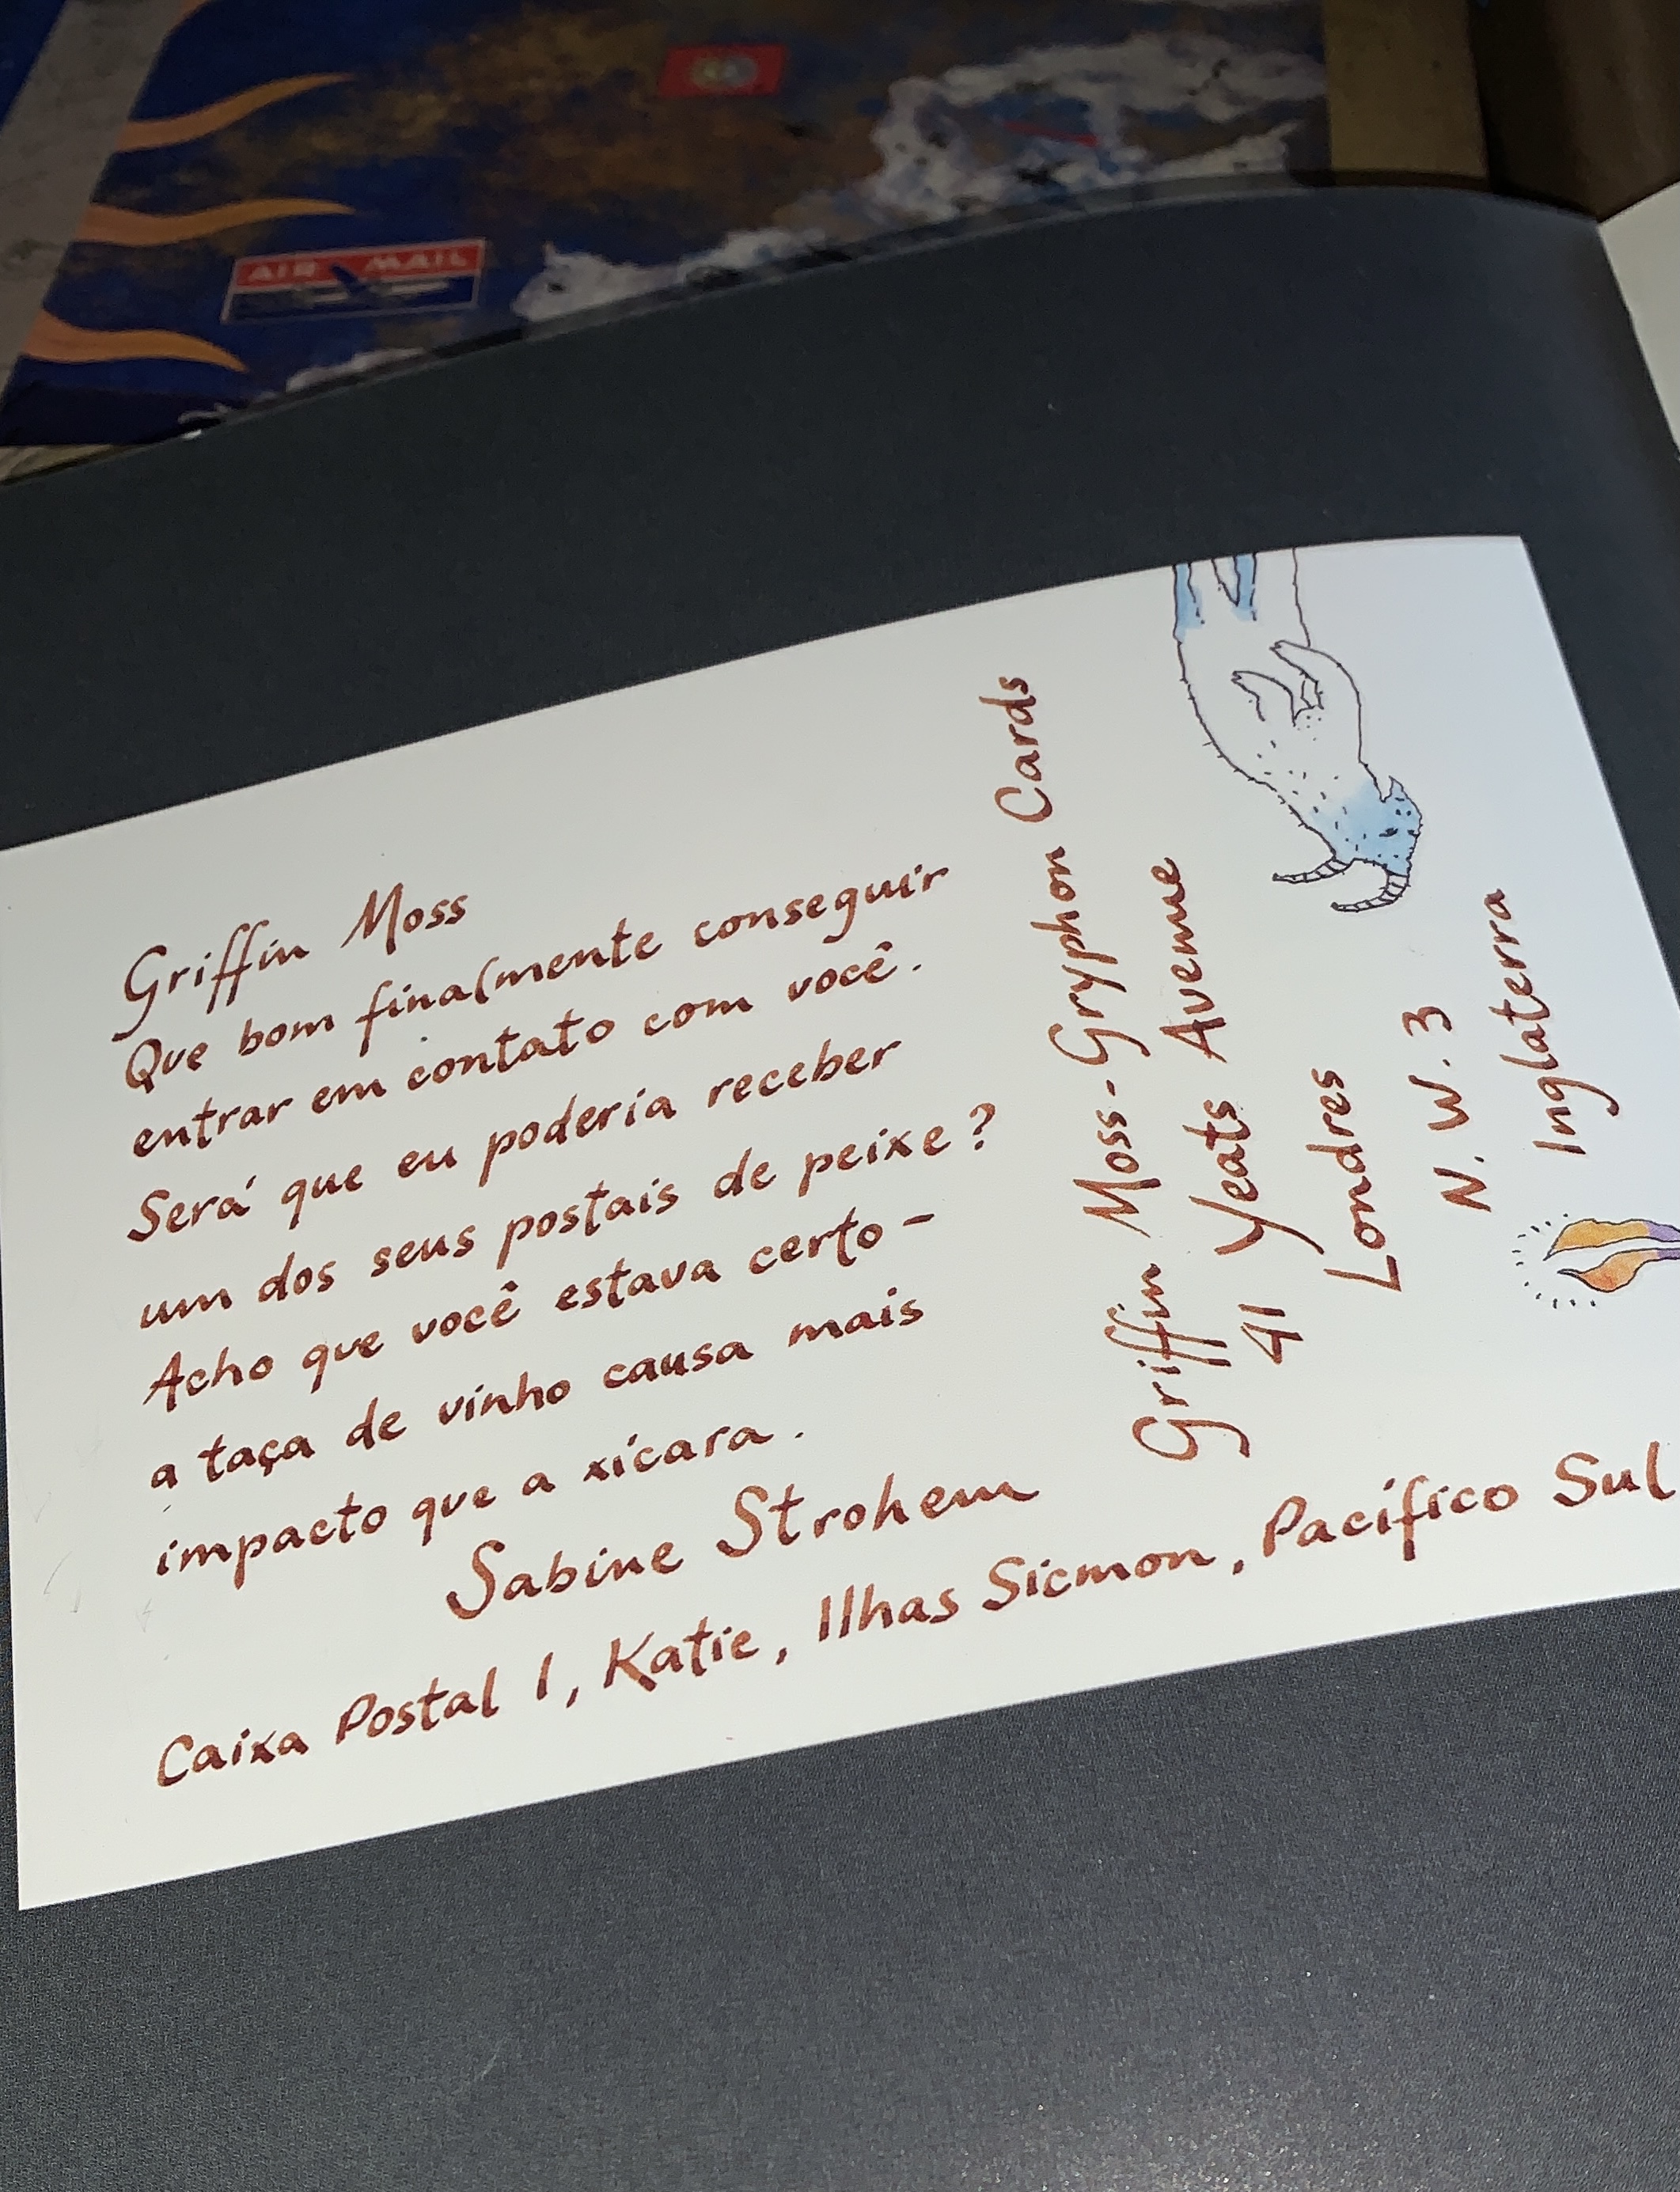 AIR MAIL
Griffin Moss
Que bom finalmente conseguir
entrar em contato com você.
Será que eu poderia receber
um dos seus postais de peixe?
Acho que você estava certo -
a taça de vinho causa mais
impacto que a xícara.
Sabine Strohem
Caixa Postal 1, Katie, Ilhas Sicmon, Pacífico Sul
Griffin Moss - Gryphon Cards
41 Yeats Avenue
Londres
N. W. 3
Inglaterra